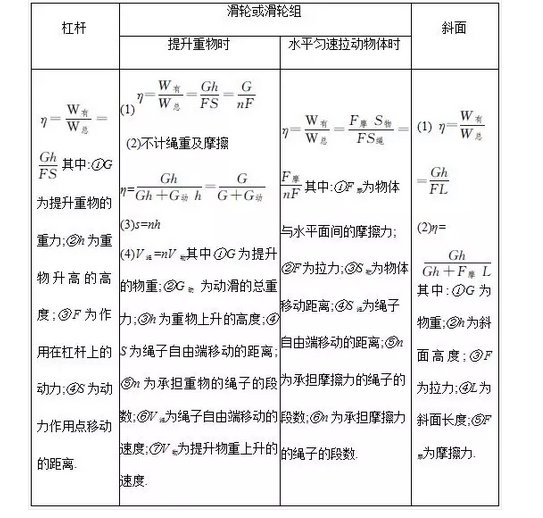 杠杆
滑轮或滑轮组
斜面
提升重物时
水平匀速拉动物体时
η=W有/W总=
Gh/FS 其中:①G
为提升重物的
重力;②h为重
物升高的高
度;③F为作
用在杠杆上的
动力;④S为动
力作用点移动
的距离.
(1) η=W有/W总=Gh/FS=G/nF
(2)不计绳重及摩擦
η=Gh/Gh+G动 h=G/G+G动
(3)s=nh
(4)V绳=nV物其中①G为提升
的物重;②G动 为动滑的总重
力;③h为重物上升的高度;④
S为绳子自由端移动的距离;
⑤n为承担重物的绳子的段
数;⑥V绳为绳子自由端移动的
速度;⑦V物为提升物重上升的
速度.
η=W有/W总=F摩 S物/FS绳=
F摩/nF 其中:①F摩为物体
与水平面间的摩擦力;
②F为拉力;③S物为物体
移动距离;④S绳为绳子
自由端移动的距离;⑤n
为承担摩擦力的绳子的
段数;⑥n为承担摩擦力
的绳子的段数.
(1) η=W有/W总
=Gh/FL
(2)η=
Gh/Gh+F摩 L
其中:①G为
物重;②h为斜
面高度;③F
为拉力;④L为
斜面长度;⑤F
摩为摩擦力.